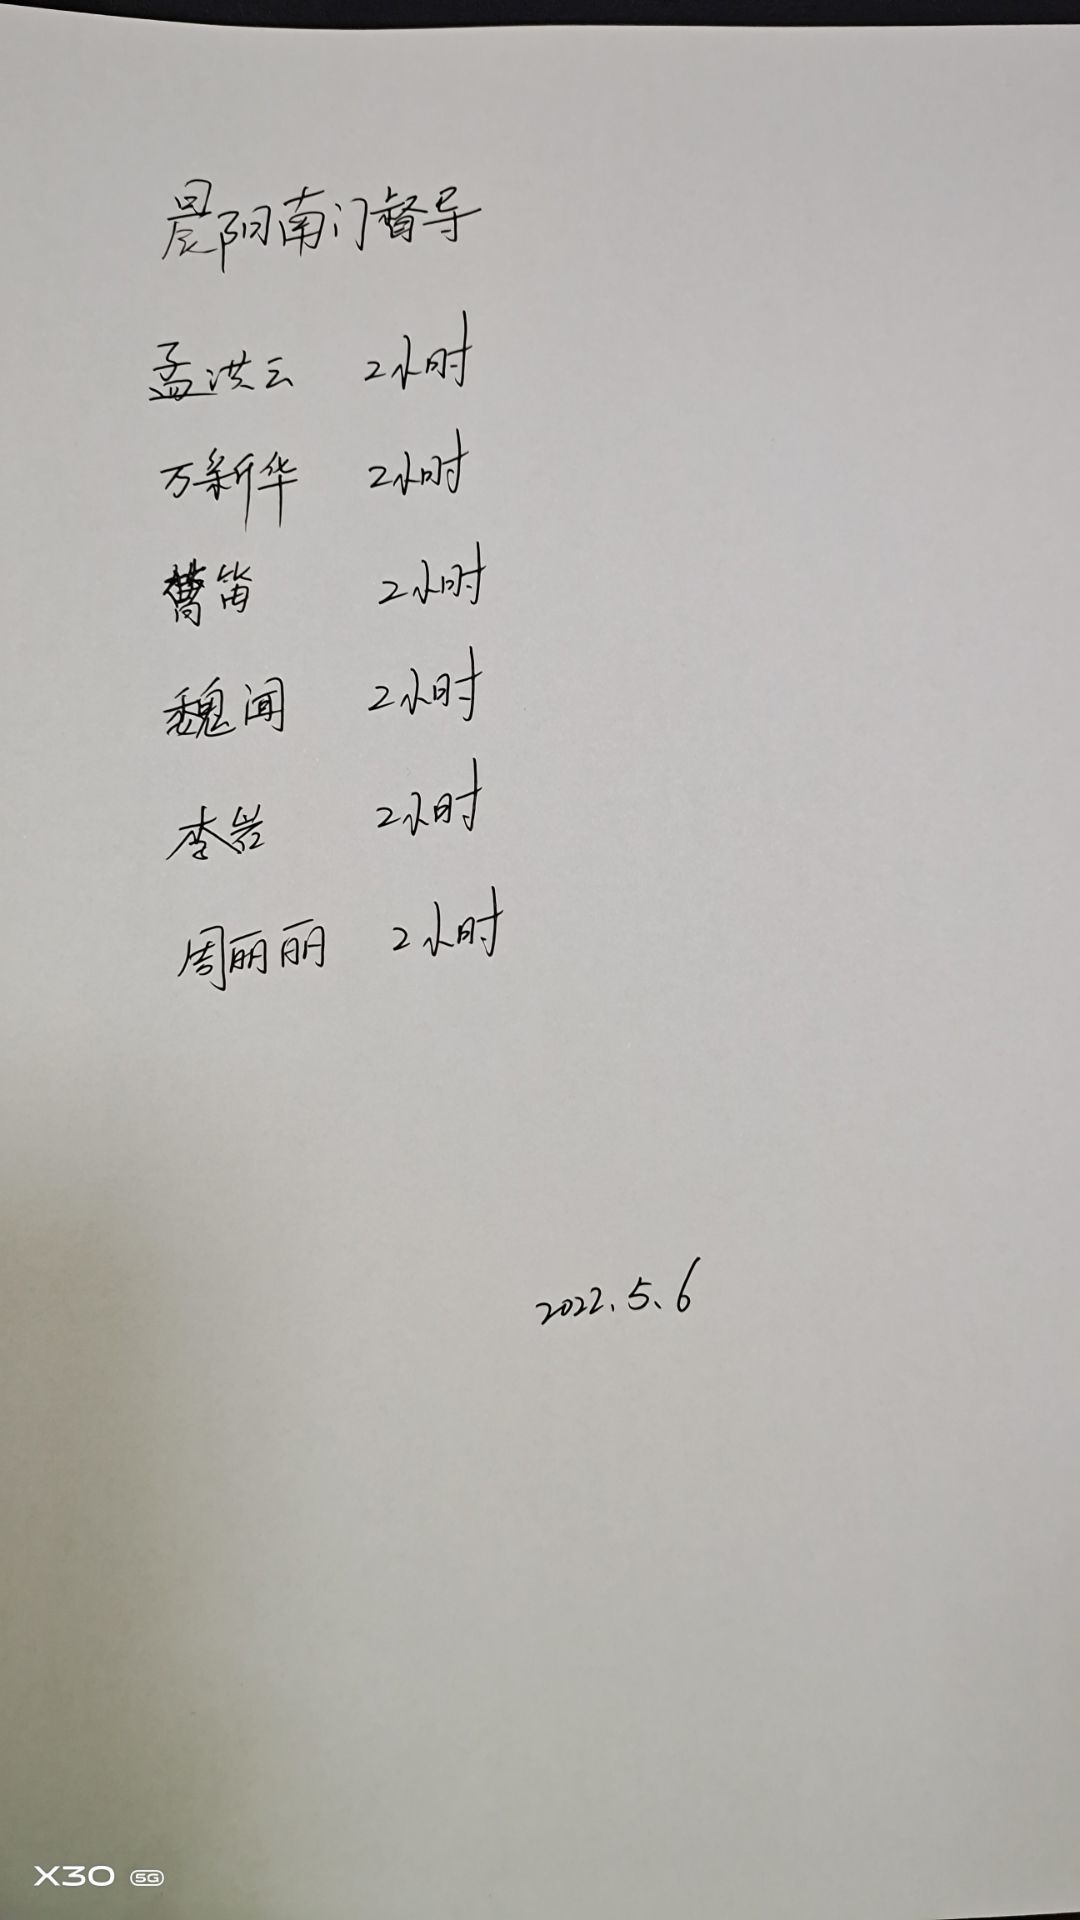 晨阳南门督导
孟洪云 2小时
万新华 2小时
曹笛 2小时
魏闻 2小时
李岩 2小时
周丽丽 2小时
2022.5.6
X30 5G